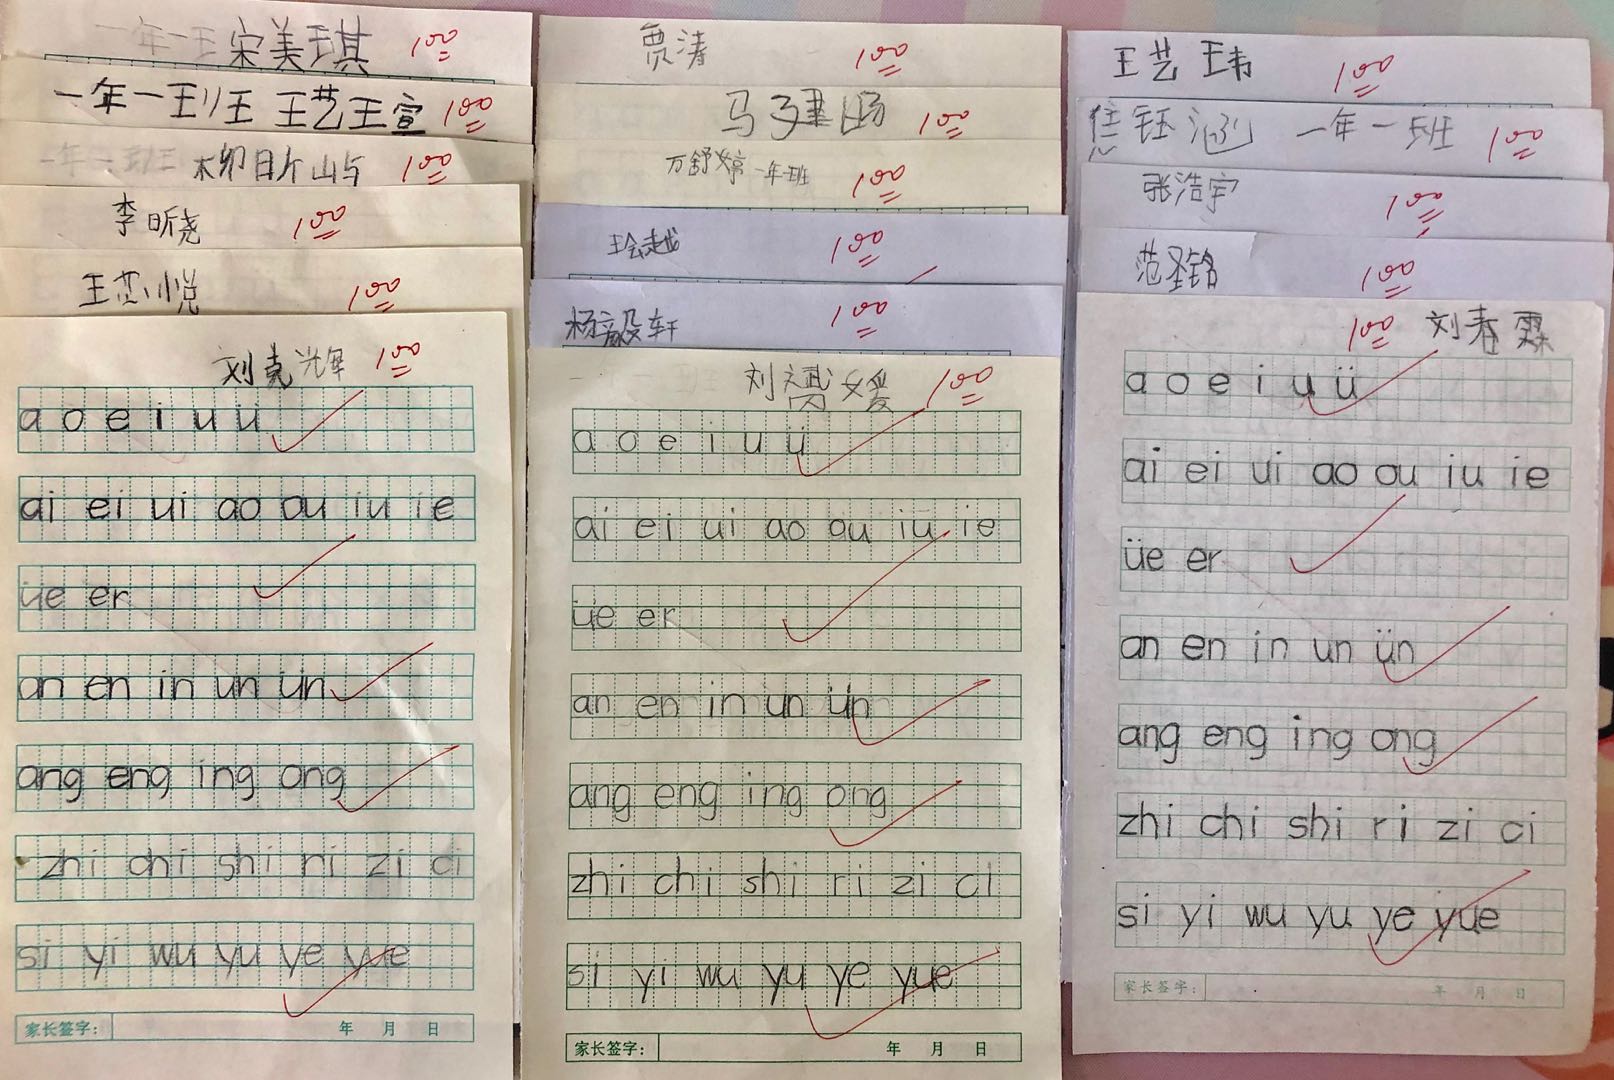 一年一班 宋美琪 100
一年一班 王艺瑄 100
一年一班 柳昕屿 100
李昕尧 100
王芯悦 100
刘克辉 100
a o e i u ü
ai ei ui ao ou iu ie
üe er
an en in un ün
ang eng ing ong
zhi chi shi ri zi ci
si yi wu yu ye yue
家长签字: 年 月 日
贾涛 100
马子建 100
万舒婷 一年一班 100
王会越 100
杨毅轩 100
刘 媛 100
a o e i u ü
ai ei ui ao ou iu ie
üe er
an en in un ün
ang eng ing ong
zhi chi shi ri zi ci
si yi wu yu ye yue
家长签字: 年 月 日
王艺玮 100
钰涵 一年一班 100
张浩宇 100
范圣铭 100
100 刘春霖
a o e i u ü
ai ei ui ao ou iu ie
üe er
an en in un ün
ang eng ing ong
zhi chi shi ri zi ci
si yi wu yu ye yue
家长签字: 年 月 日